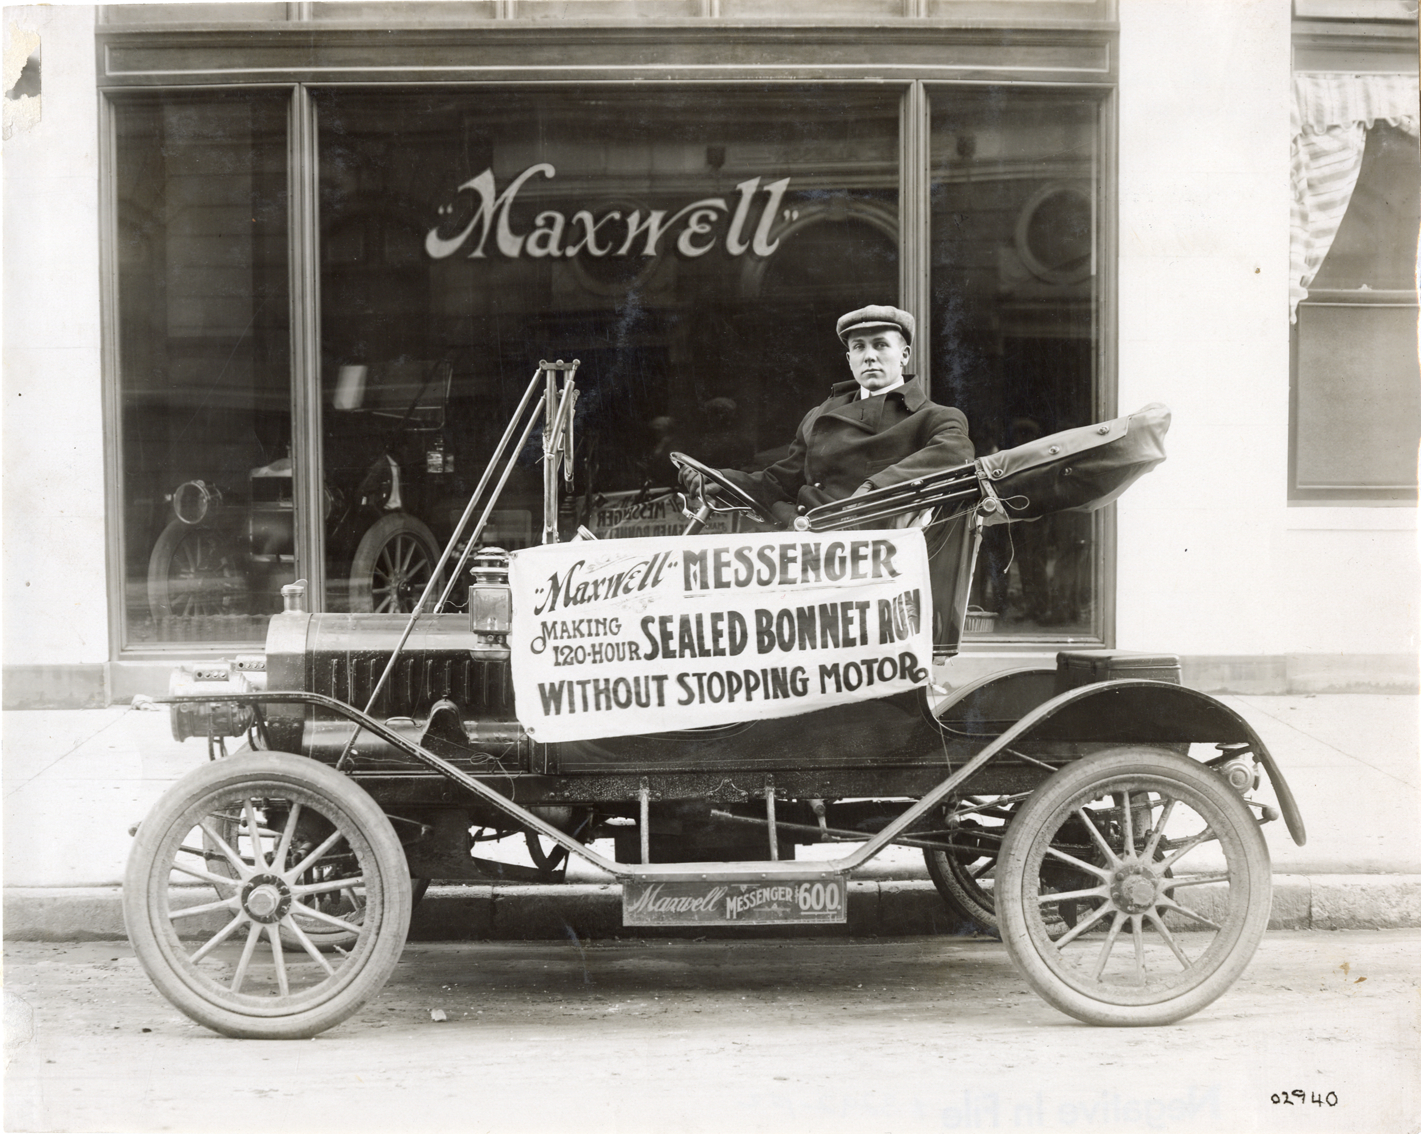 "Maxwell"
"Maxwell" MESSENGER
MAKING
120-HOUR SEALED BONNET RUN
WITHOUT STOPPING MOTOR
Maxwell MESSENGER $600.
02940
Negative In File